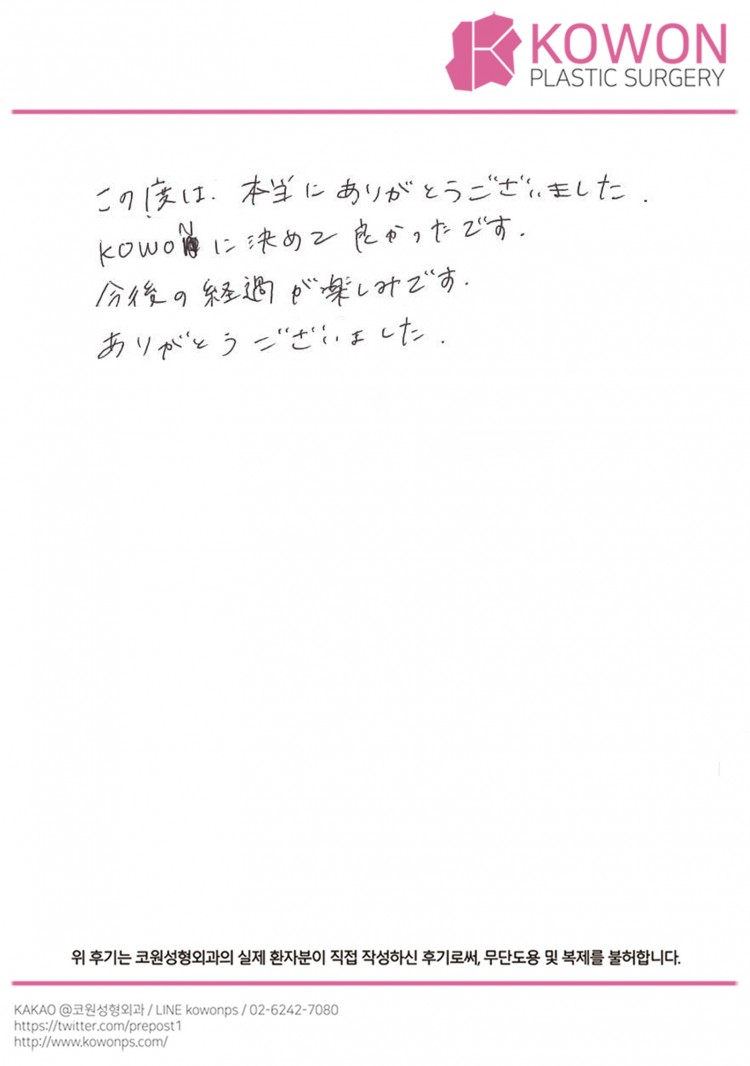 KOWON
PLASTIC SURGERY
この度は、本当にありがとうございました.
KOWONに決めて良かったです.
今後の経過が楽しみです.
ありがとうございました.
위 후기는 코원성형외과의 실제 환자분이 직접 작성하신 후기로써, 무단도용 및 복제를 불허합니다.
KAKAO @코원성형외과 / LINE kowonps / 02-6242-7080
https://twitter.com/prepost1
http://www.kowonps.com/